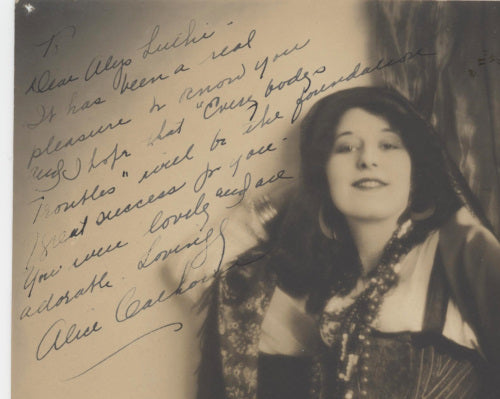 To
Dear Alys Luthi -
It has been a real
pleasure to know you
and I hope that "Every bodys
Troubles" will be the foundation
Great success for you.
You were lovely and are
adorable. Lovingly
Alice Calhoun